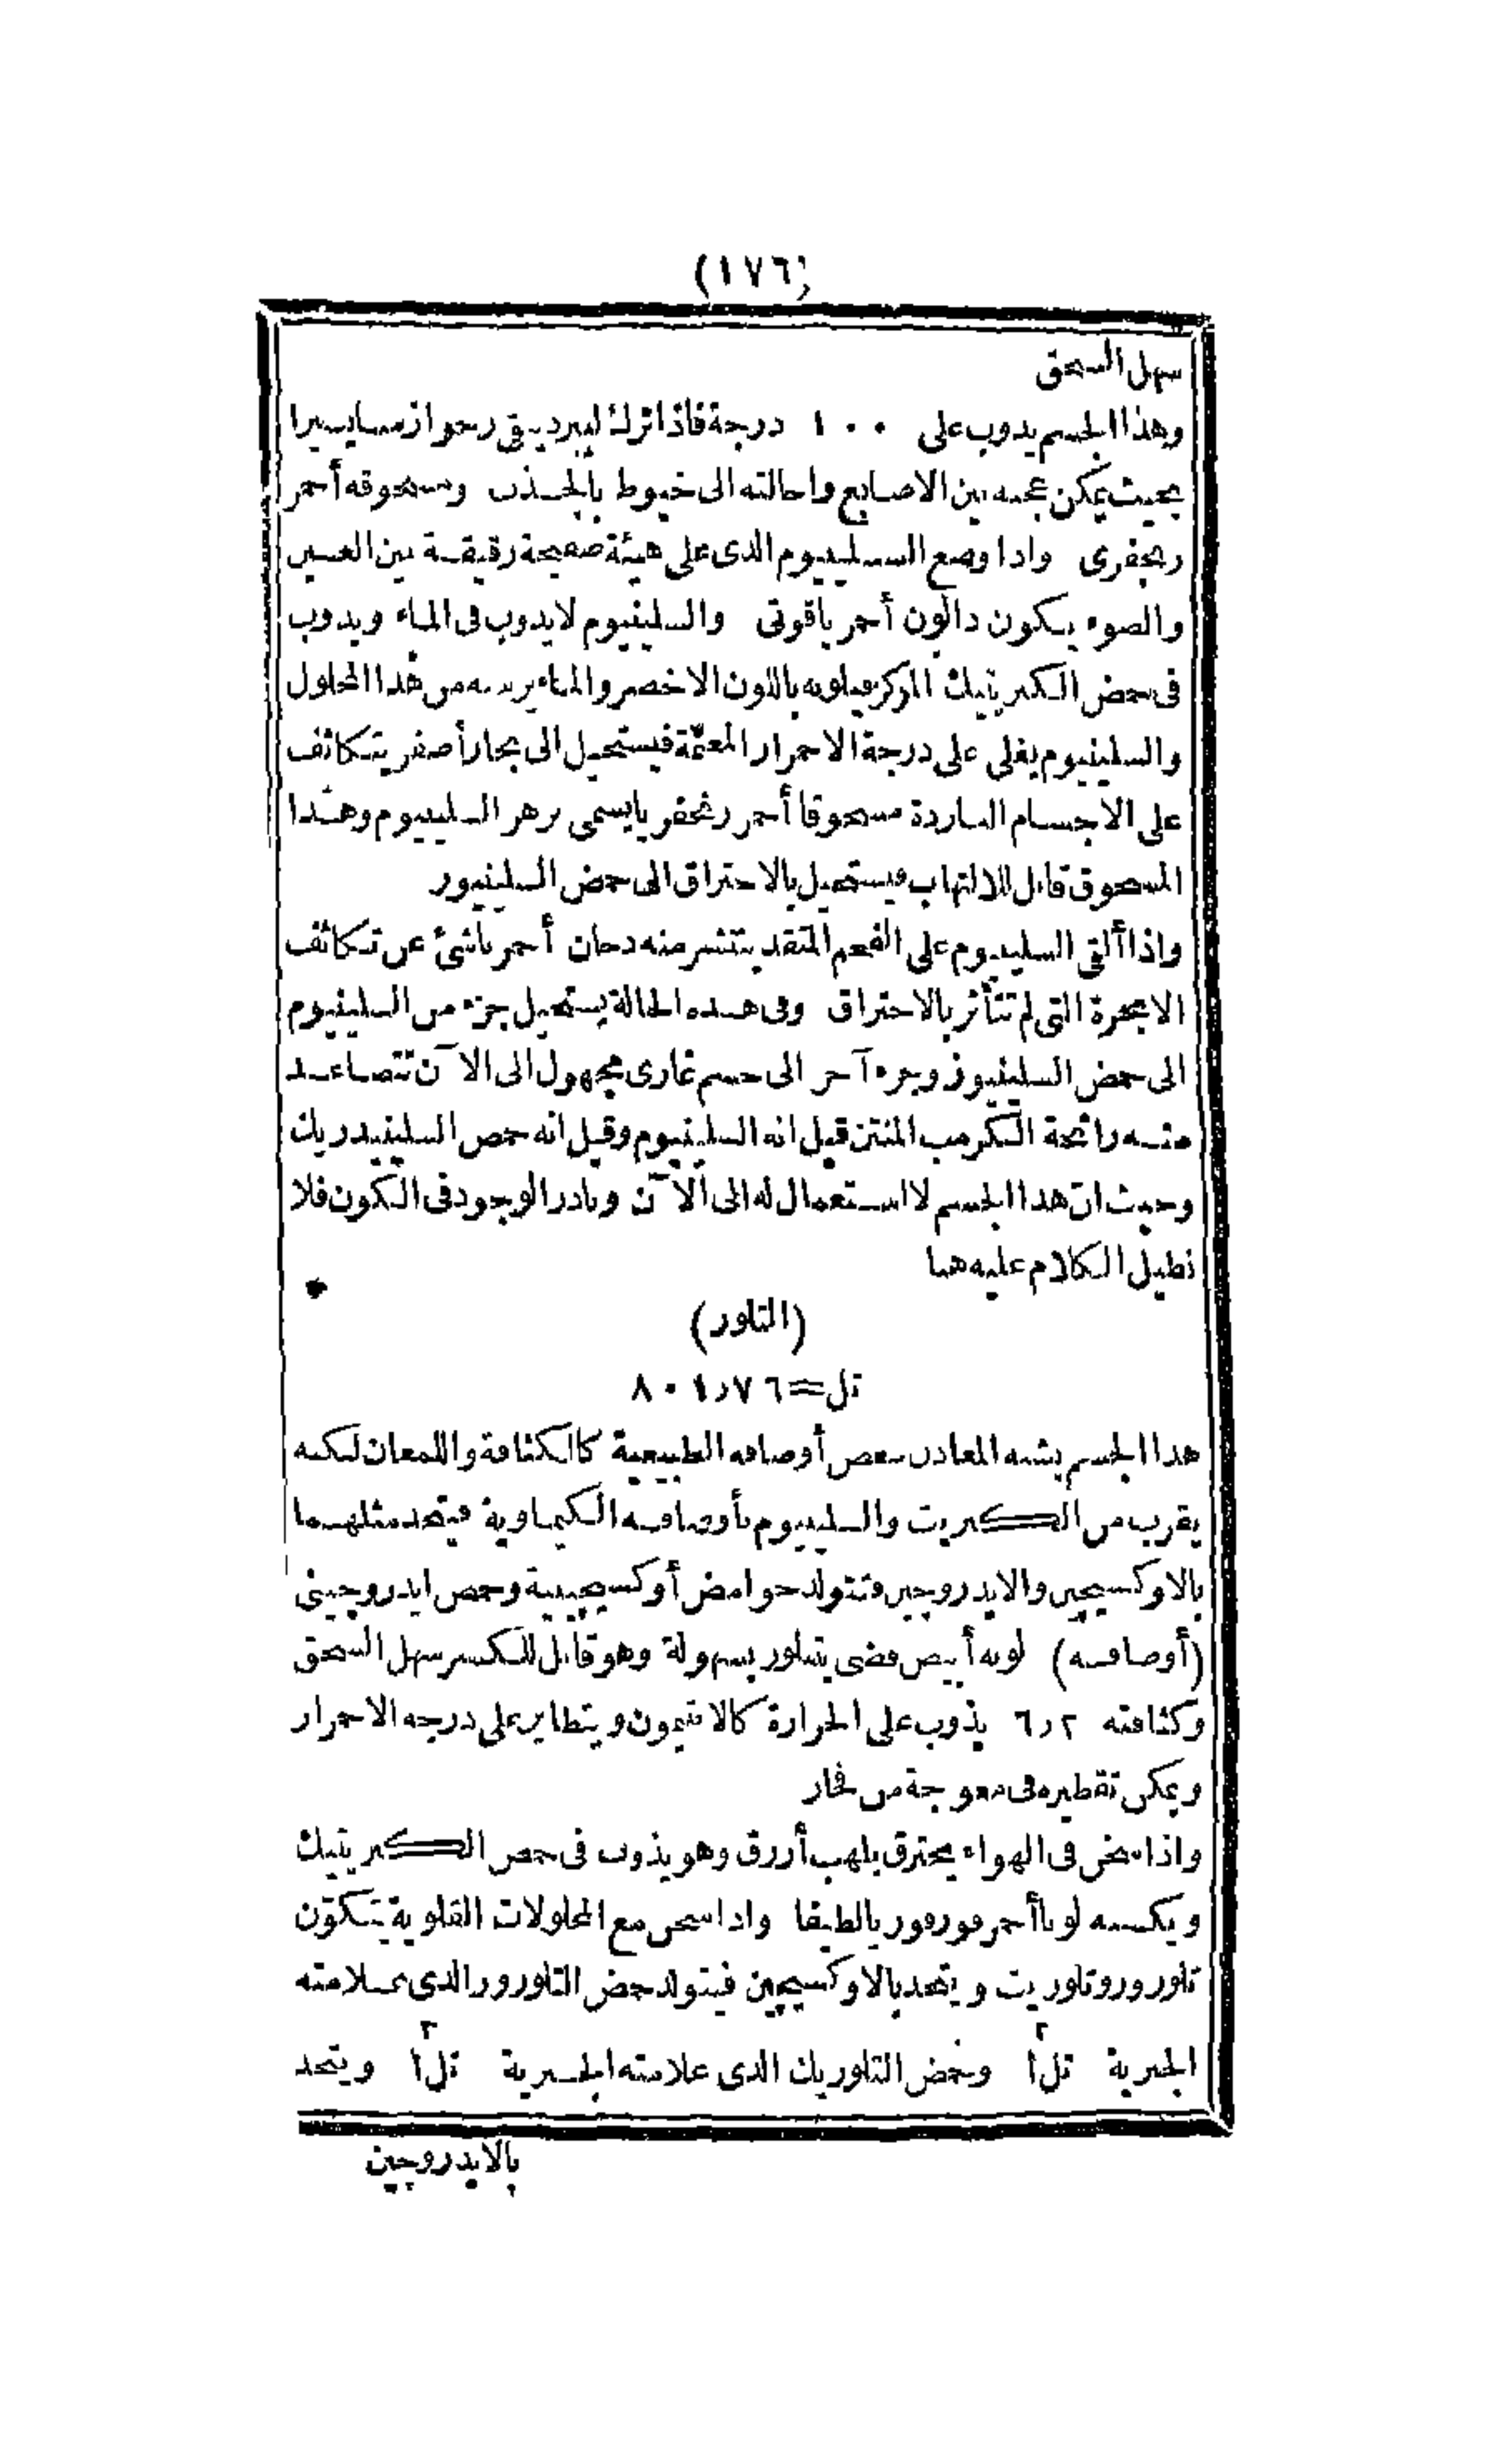 (١٧٦)
سهل السحق
وهذا الجسم يذوب على ١٠٠ درجة فاذا ترك ليبرد يبقى رخوا زمنا يسيرا
بحيث يمكن عجنه بين الاصابع واحالته الى خيوط بالجذب ومسحوقه أحمر
زنجفرى واذا وضع السلينيوم الذى على هيئة صفيحة رقيقة بين العين
والضوء يكون ذا لون أحمر ياقوتى والسلينيوم لا يذوب فى الماء ويذوب
فى حمض الكبريتيك المركز فيلونه باللون الاخضر والماء يرسبه من هذا المحلول
والسلينيوم يغلى على درجة الاحمرار المعتمة فيستحيل الى بخار أصفر يتكاثف
على الاجسام الباردة مسحوقا أحمر زنجفريا يسمى بزهر السلينيوم وهذا
المسحوق قابل للالتهاب فيستحيل بالاحتراق الى حمض السلينيوز
واذا ألقى السلينيوم على الفحم المتقد ينتشر منه دخان أحمر ناشئ عن تكاثف
الابخرة التى لم تتأثر بالاحتراق وفى هذه الحالة يستحيل جزء من السلينيوم
الى حمض السلينيوز وجزء آخر الى جسم غازى مجهول الى الآن تتصاعد
منه رائحة الكرنب المنتن قيل انه السلينيوم وقيل انه حمض السلينيدريك
وحيث ان هذا الجسم لا استعمال له الى الآن ونادر الوجود فى الكون فلا
نطيل الكلام عليه هنا
(التلور)
تل = ٨٠١٫٧٦
هذا الجسم يشبه المعادن ببعض أوصافه الطبيعية كالكثافة واللمعان لكنه
يقرب من الكبريت والسلينيوم بأوصافه الكيماوية فيتحد مثلهما
بالاوكسيچين والايدروچين فتتولد حوامض أوكسيچينية وحمض ايدروچينى
(أوصافه) لونه أبيض فضى يتبلور بسهولة وهو قابل للكسر سهل السحق
وكثافته ٦٫٢ يذوب على الحرارة كالانتيمون ويتطاير على درجة الاحمرار
ويمكن تقطيره فى معوجة من فخار
واذا سخن فى الهواء يحترق بلهب أزرق وهو يذوب فى حمض الكبريتيك
ويكسبه لونا أحمر فورفوريا لطيفا واذا سخن مع المحلولات القلوية يتكوّن
تلورور وتلوريت ويتحد بالاوكسيچين فيتولد حمض التلورور الذى علامته
الجبرية تل أ٢ وحمض التلوريك الذى علامته الجبرية تل أ٣ ويتحد
بالايدروچين